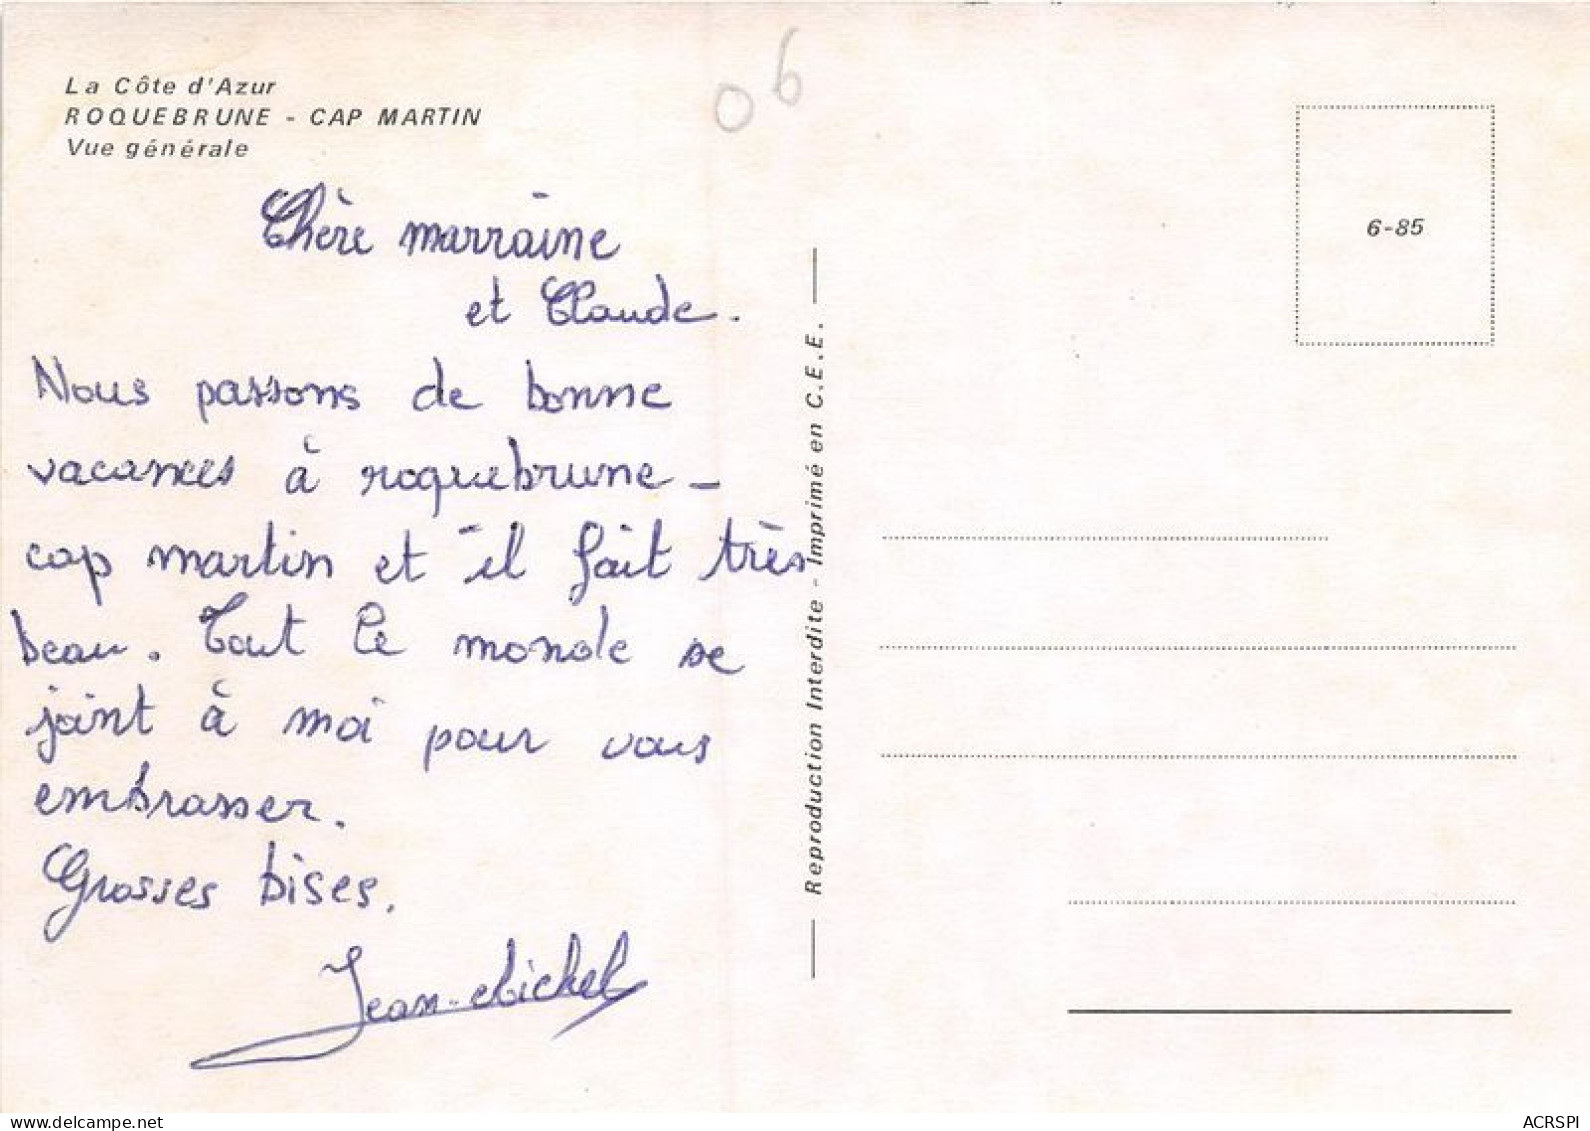 La Côte d'Azur
ROQUEBRUNE - CAP MARTIN
Vue générale
06
Chère marraine
et Claude.
Nous passons de bonne
vacances à roquebrune-
cap martin et il fait très
beau. Tout le monde se
joint à moi pour vous
embrasser.
Grosses bises.
Jean-Michel
Reproduction Interdite - Imprimé en C.E.E.
6-85
www.delcampe.net
ACRSPI